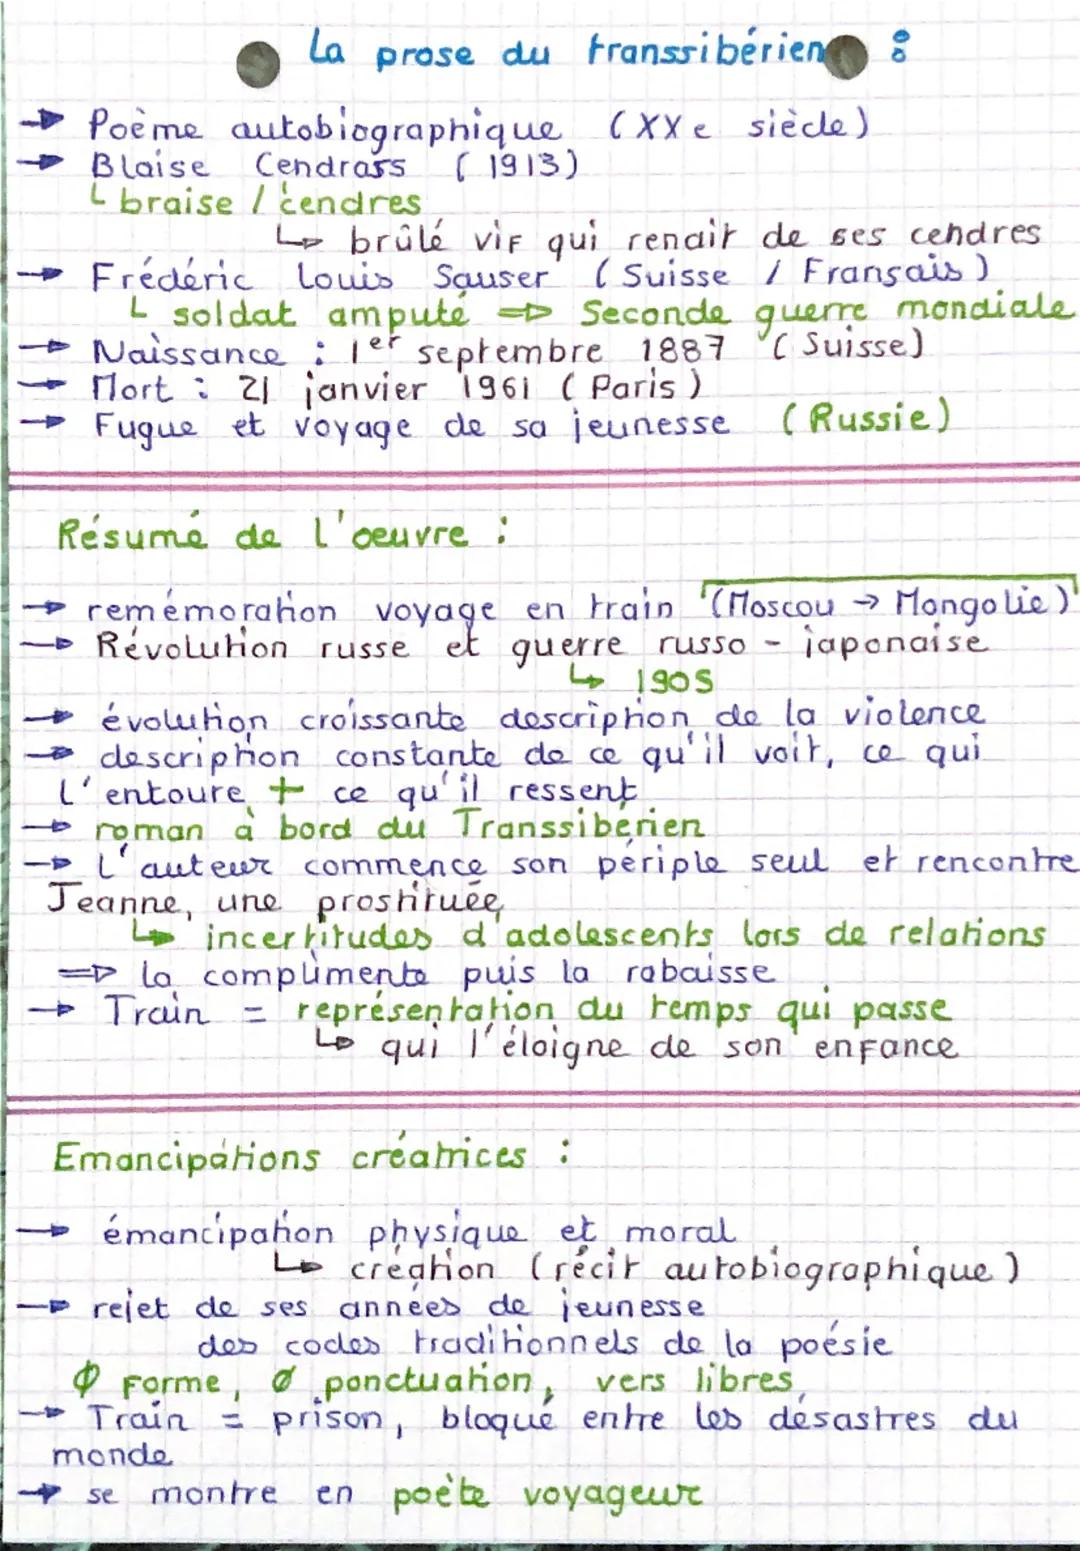 La prose du transsibérien :
→ Poème autobiographique (XXe siècle)
→ Blaise Cendrass (1913)
↳ braise / cendres
↳ brûlé vif qui renait de ses cendres
→ Frédéric Louis Sauser (Suisse / Français)
↳ soldat amputé ⇒ Seconde guerre mondiale
→ Naissance : 1er septembre 1887 (Suisse)
→ Mort : 21 janvier 1961 (Paris)
→ Fugue et voyage de sa jeunesse (Russie)
Résumé de l'oeuvre :
→ remémoration voyage en train (Moscou → Mongolie)
→ Révolution russe et guerre russo - japonaise
↳ 1905
→ évolution croissante description de la violence
→ description constante de ce qu'il voit, ce qui
l'entoure + ce qu'il ressent
→ roman à bord du Transsibérien
→ L'auteur commence son périple seul et rencontre
Jeanne, une prostituée
↳ incertitudes d'adolescents lors de relations
⇒ la complimente puis la rabaisse
→ Train = représentation du temps qui passe
↳ qui l'éloigne de son enfance
Emancipations créatrices :
→ émancipation physique et moral
↳ création (récit autobiographique)
→ rejet de ses années de jeunesse
des codes traditionnels de la poésie
Ø forme, Ø ponctuation, vers libres
→ Train = prison, bloqué entre les désastres du
monde
→ se montre en poète voyageur